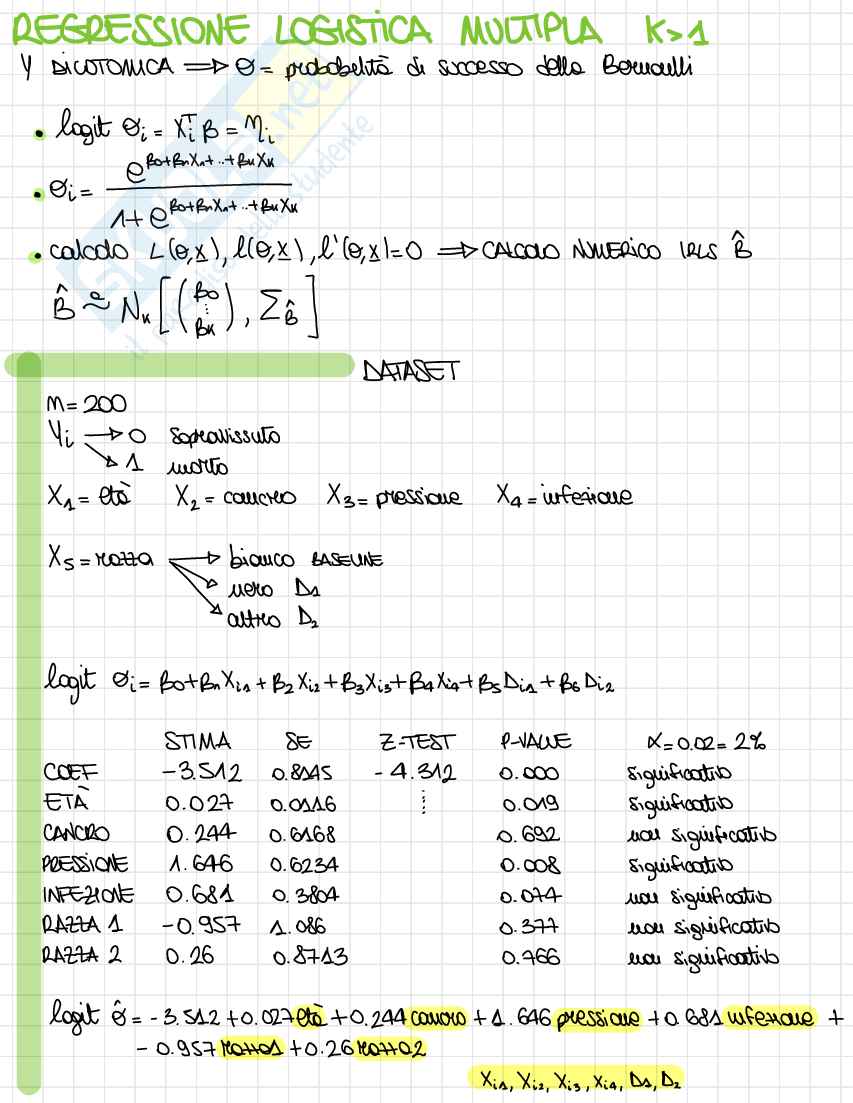 REGRESSIONE LOGISTICA MULTIPLA K>1
Y DICOTOMICA ⟹ θ = probabilità di successo della Bernoulli
• logit θi = XiᵀB = ηi
• θi = e^(β0+β1X1+..+βkXk) / 1+e^(β0+β1X1+..+βkXk)
• calcolo L(θ,x), l(θ,x), l'(θ,x)=0 ⟹ CALCOLO NUMERICO IRLS B̂
B̂ ~ᵃ Nk[(β0 ⋮ βk), ΣB̂]
DATASET
n=200
Yi → 0 sopravvissuto
→ 1 morto
X1 = età X2 = cancro X3 = pressione X4 = infezione
X5 = razza → bianco BASELINE
→ nero D1
→ altro D2
logit θi = β0+β1Xi1+β2Xi2+β3Xi3+β4Xi4+β5Di1+β6Di2
STIMA SE Z-TEST P-VALUE α=0.02=2%
COEF -3.512 0.8145 -4.312 0.000 significativo
ETÀ 0.027 0.0116 ⋮ 0.019 significativo
CANCRO 0.244 0.6168 0.692 non significativo
PRESSIONE 1.646 0.6234 0.008 significativo
INFEZIONE 0.681 0.3804 0.074 non significativo
RAZZA 1 -0.957 1.086 0.377 non significativo
RAZZA 2 0.26 0.8713 0.766 non significativo
logit θ̂ = -3.512+0.027età+0.244cancro+1.646pressione+0.681infezione+
-0.957razza1+0.26razza2
Xi1, Xi2, Xi3, Xi4, D1, D2